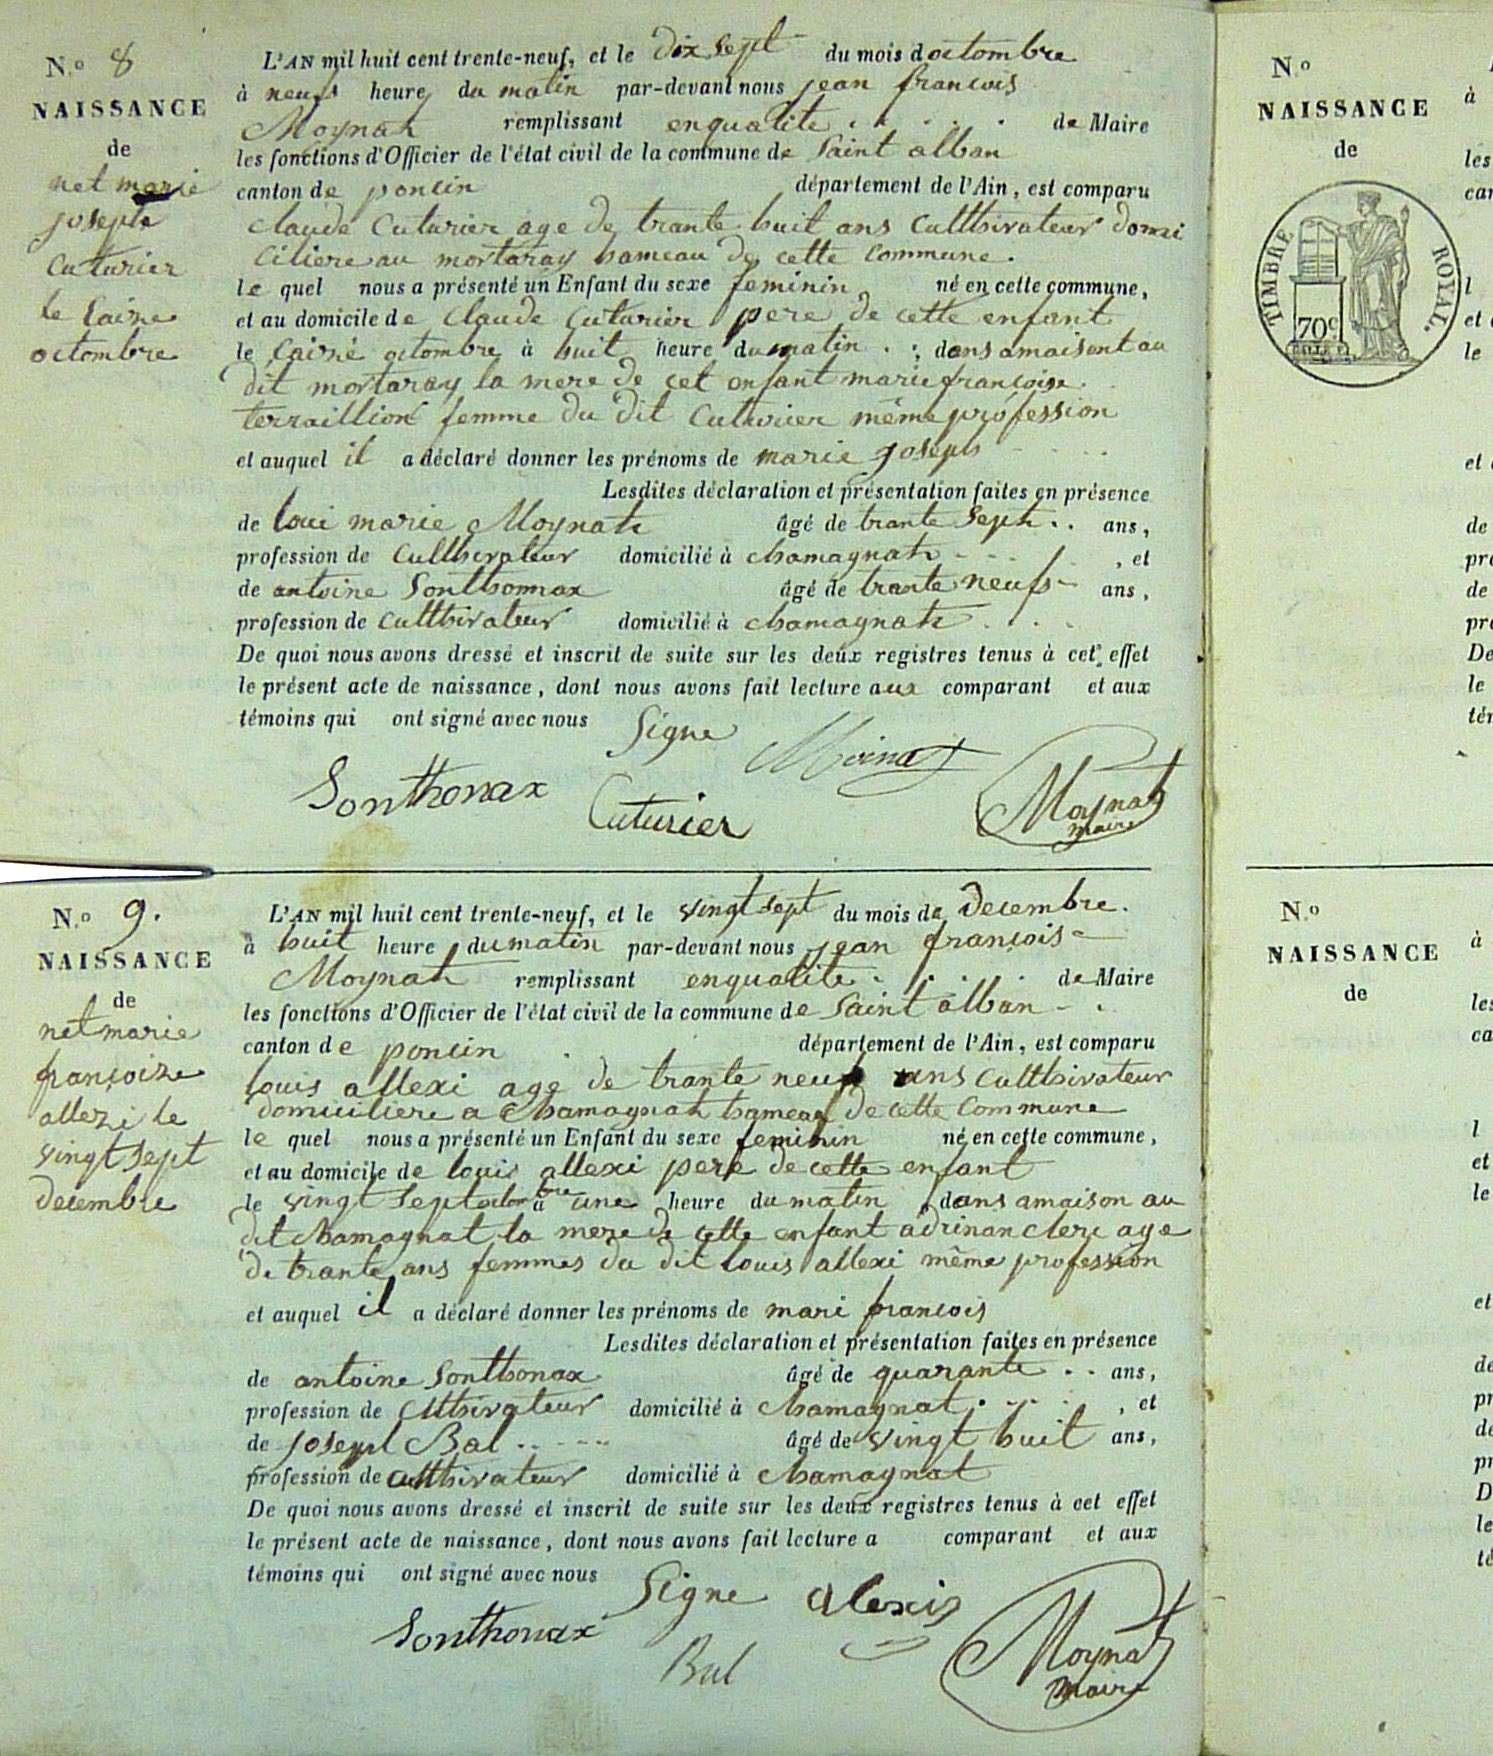 N.o 8
NAISSANCE
de
net marie
josepte
Cuturier
le saise
octombre
L'AN mil huit cent trente-neuf, et le dix sept du mois doctombre
à neufs heure du matin par-devant nous jean francois
Moynat remplissant enqualite de Maire
les fonctions d'Officier de l'état civil de la commune de Saint alban
canton de poncin département de l'Ain, est comparu
claude Cuturier age de trante huit ans Culthivateur domi
ciliere au mortaray hameau de cette Commune.
le quel nous a présenté un Enfant du sexe feminin né en cette commune,
et au domicile de Claude Cuturier pere de cette enfant
le octombre à huit heure du matin dans amaisont au
dit mortaray la mere de cet enfant marie françoise
terraillion femme du dit Cuturier même profession
et auquel il a déclaré donner les prénoms de marie joseph
Lesdites déclaration et présentation faites en présence
de loui marie Moynat âgé de trante Sept ans,
profession de Culthivateur domicilié à chamagnat , et
de antoine Sonthonnax âgé de trante neufs ans,
profession de Culthivateur domicilié à chamagnat
De quoi nous avons dressé et inscrit de suite sur les deux registres tenus à cet effet
le présent acte de naissance, dont nous avons fait lecture aux comparant et aux
témoins qui ont signé avec nous Signe
Moinat
Sonthonax Cuturier Moynat
maire
N.o 9.
NAISSANCE
de
net marie
françoise
allexi le
vingt sept
decembre
L'AN mil huit cent trente-neuf, et le vingt sept du mois de Decembre.
à huit heure du matin par-devant nous jean françois
Moynat remplissant enqualite de Maire
les fonctions d'Officier de l'état civil de la commune de Saint alban
canton de poncin département de l'Ain, est comparu
louis allexi age de trante neuf ans Culthivateur
domiciliere a Chamagnat hameau de cette Commune
le quel nous a présenté un Enfant du sexe feminin né en cette commune,
et au domicile de louis allexi pere de cette enfant
le vingt Sept à une heure du matin dans amaison au
dit Chamagnat la mere de cette enfant adrinan clere age
de trante ans femmes du dit louis allexi même profession
et auquel il a déclaré donner les prénoms de mari francois
Lesdites déclaration et présentation faites en présence
de antoine Sonthonax âgé de quarante ans,
profession de Culthivateur domicilié à Chamagnat , et
de joseph Bal âgé de vingt huit ans,
profession de Culthivateur domicilié à chamagnat
De quoi nous avons dressé et inscrit de suite sur les deux registres tenus à cet effet
le présent acte de naissance, dont nous avons fait lecture a comparant et aux
témoins qui ont signé avec nous Signe alexis
Sonthonax Bal Moynat
maire
N.o
NAISSANCE
de
TIMBRE ROYAL.
70c
N.o
NAISSANCE
de
à
les
l
et
le
et
de
de
De
le
à
les
ca
l
et
le
et
de
pr
de
pr
D
le
té